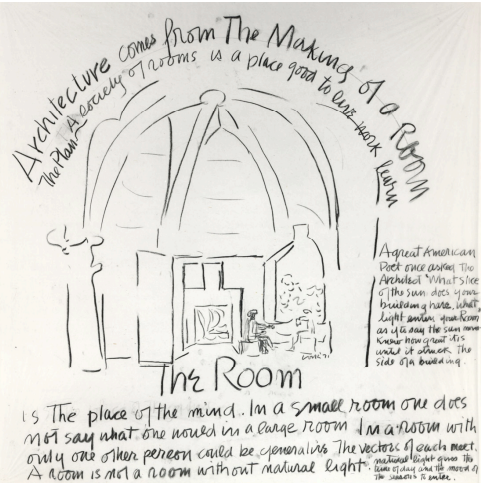 Architecture comes from The Making of a Room
The Plan A society of rooms is a place good to live work learn
A great American
Poet once asked The
Architect "What slice
of the sun does your
building have, what
light enters your Room
as if to say the sun never
knew how great it is
until it struck the
side of a building.
The Room
is The place of the mind. In a small room one does
not say what one would in a large room In a room with
only one other person could be generative The vectors of each meet.
A room is not a room without natural light.
natural light gives the
time of day and the mood of
the seasons to enter.